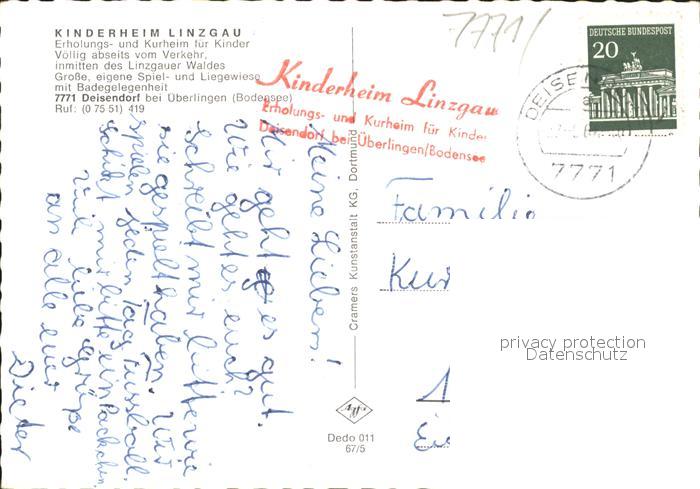 7771/
KINDERHEIM LINZGAU
Erholungs- und Kurheim für Kinder
Völlig abseits vom Verkehr,
inmitten des Linzgauer Waldes
Große, eigene Spiel- und Liegewiese
mit Badegelegenheit
7771 Deisendorf bei Überlingen (Bodensee)
Ruf: (0 75 51) 419
Kinderheim Linzgau
Erholungs- und Kurheim für Kinder
Deisendorf bei Überlingen/Bodensee
DEUTSCHE BUNDESPOST
20
DEISEN
7771
Meine Lieben!
Mir geht es gut.
Wie geht es euch?
schreibt mir bitte wie
sie gespielt haben. Wir
spielen jeden Tag Fussball.
schikt mir bitte ein Päckchen.
viele liebe Grüße
an alle euer
Dieter
Cramers Kunstanstalt KG, Dortmund
Familie
Kur
1
Ei
Dedo 011
67/5
privacy protection
Datenschutz